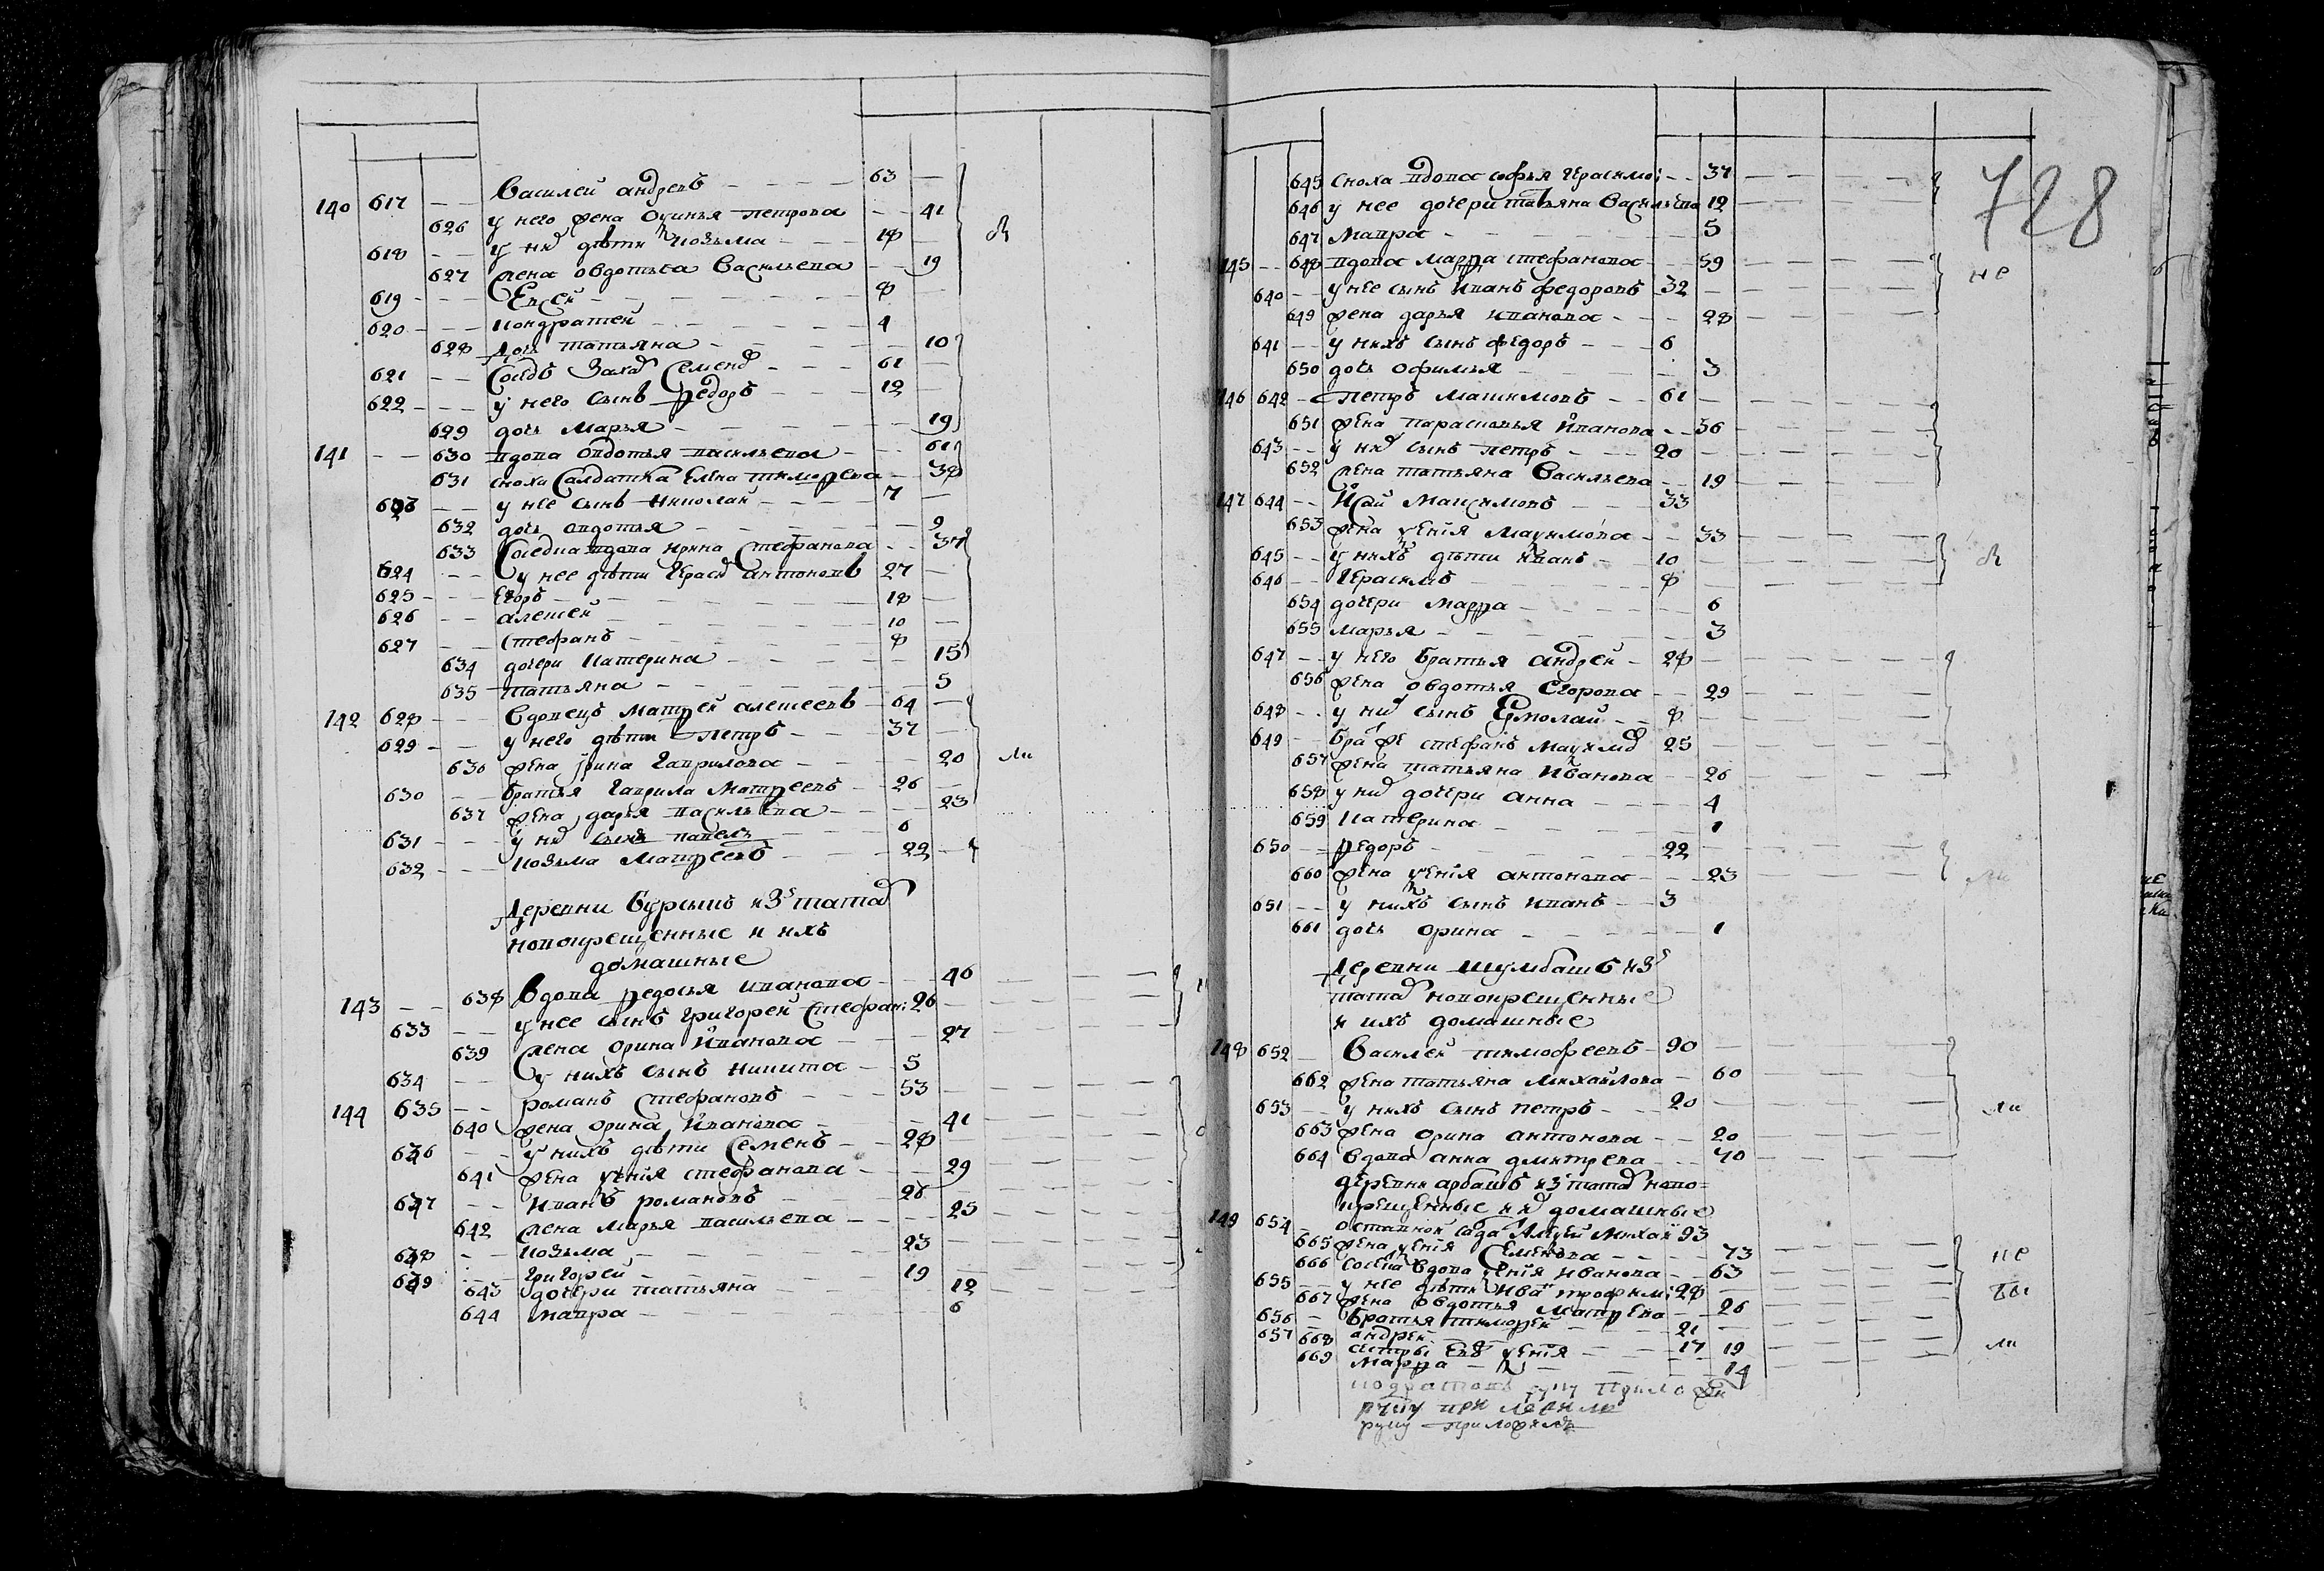 140 617 Василей андревъ 63
626 у него жена Оуинья петрова 41
618 у них дѣти козьма 18
627 жена овдотьеа Васильева 19
619 Евсей 8
620 кондратей 4
628 дочь татьяна 10
621 Соседъ Захар Семенов 61
622 у него сынъ Федоръ 12
629 дочь Марья 19
141 630 вдова овдотья васильева 61
631 сноха Салдатка Елена тимофеева 38
623 у нее сынъ николай 7
632 дочь овдотья 9
633 Соседка вдова ирина Стефанова 37
624 у нее дѣти Герасим антоновъ 27
625 Егоръ 18
626 алексей 10
627 стефанъ 8
634 дочери катерина 15
635 татьяна 5
142 628 Вдовецъ Матфей алексеевъ 64
629 у него дѣти петръ 37
636 жена ирина гаврилова 20
ли
630 братья гаврила Матфеевъ 26
637 жена дарья васильева 23
631 у них сынъ павелъ 6
632 козьма Матфеевъ 22
деревни Бурсыкъ изъ татар
новокрещенные и ихъ
домашные
143 638 Вдова федосья иванова 46
633 у нее сынъ григорей Стефан: 26
639 жена орина Иванова 27
634 у нихъ сынъ никита 5
144 635 романъ Стефановъ 53
640 жена орина Иванова 41
636 у нихъ дѣти Семенъ 28
641 жена уксиня стефанова 29
637 Иванъ романовъ 26
642 жена марья васильева 25
638 козьма 23
639 григорей 19
643 дочери татьяна 12
644 мавра 6
728
645 сноха вдова софья герасимо: 37
646 у нее дочери татьяна Васильева 12
647 Мавра 5
145 648 вдова марфа стефанова 59
не
640 у нее сынъ Иванъ федоровъ 32
649 жена дарья иванова 28
641 у нихъ сынъ федоръ 6
650 дочь офимья 3
146 642 петръ Максимовъ 61
651 жена парасковья Иванова 36
643 у них сынъ петръ 20
652 жена татьяна Васильева 19
147 644 Исай Максимовъ 33
653 жена уксиня Максимова 33
645 у нихъ дѣти Иванъ 10
646 Герасимъ 8
654 дочери Марфа 6
655 марья 3
647 у него братья андрей 28
656 жена овдотья Егорова 29
648 у них сынъ Ермолай 8
649 братъ же стефанъ Максимов 25
657 жена татьяна Иванова 26
658 у них дочери анна 4
659 катерина 1
650 федоръ 22
660 жена уксиня антонова 23
ли
651 у нихъ сынъ иванъ 3
661 дочь орина 1
деревни шумбашъ изъ
татар новокрещенные
и ихъ домашные
148 652 Василей тимофеевъ 90
662 жена татьяна михайлова 60
653 у нихъ сынъ петръ 20
ли
663 жена орина антонова 20
664 вдова анна дмитрева 70
деревни арбашъ изъ татар ново=
крещенные и их домашные
149 654 отставной салдат Алексей Михай 93
665 жена уксиня Семенова 73
не
666 соседка вдова уксиня иванова 63
655 у нее дѣти Иван трофим: 28
667 жена овдотья Матфеева 26
656 братья тимофей 21
657 андрей 17
ли
668 сестры ево уксиня 19
669 марфа 14
руку приложилъ